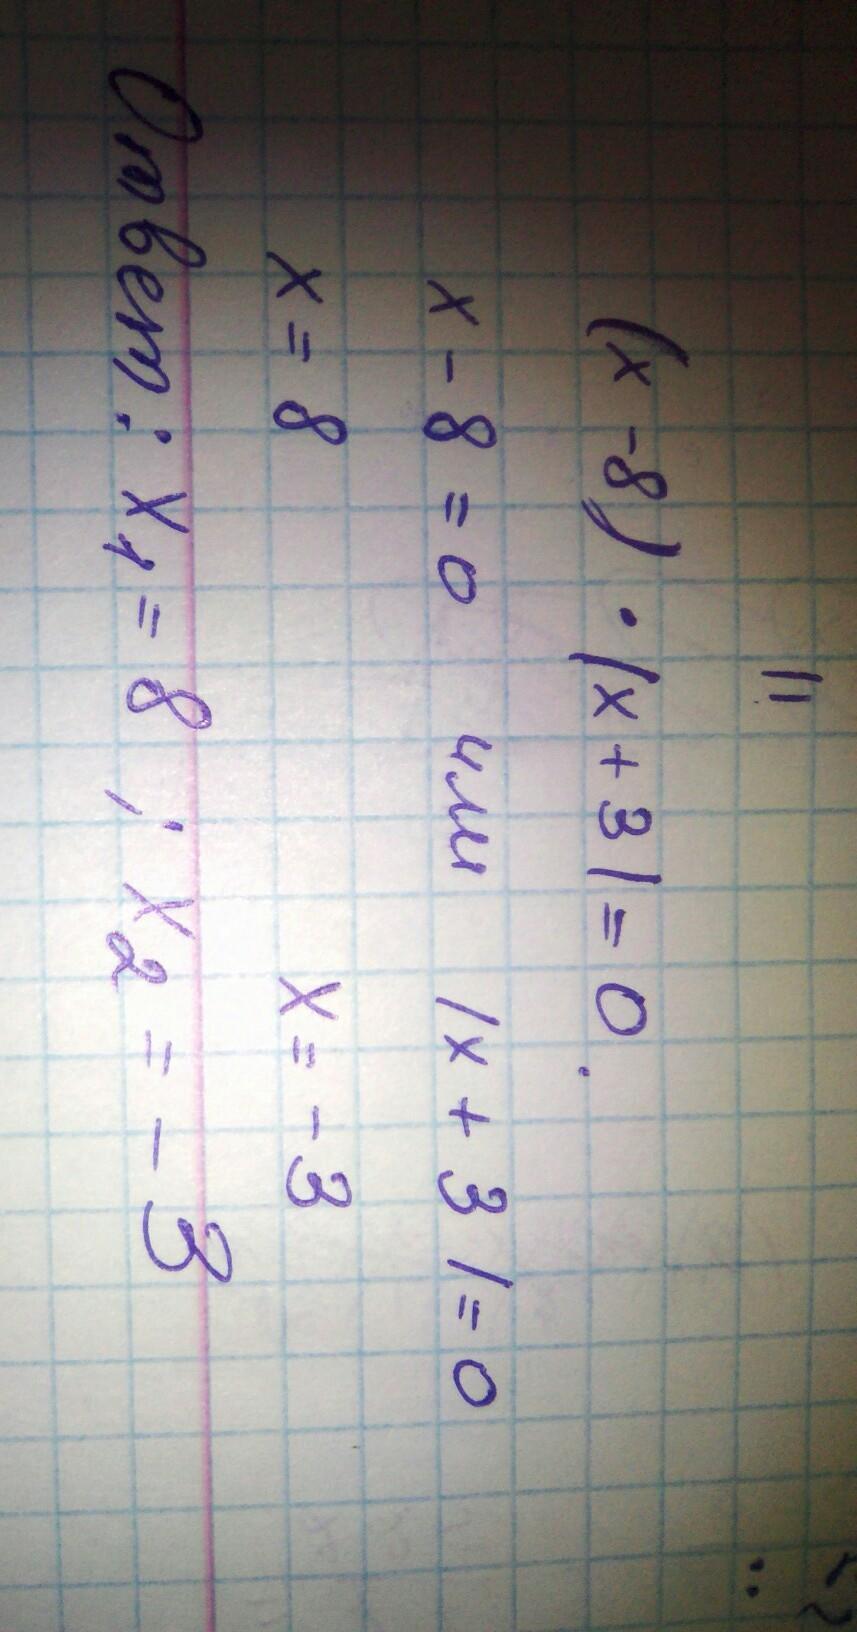 (x-8)·|x+3|=0.
x-8=0 или |x+3|=0
x=8 x=-3
Ответ: x₁=8; x₂=-3